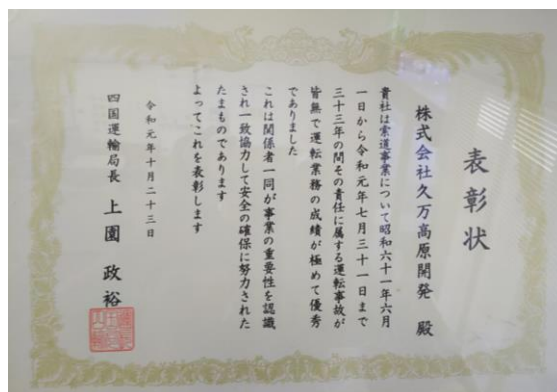 表彰状
株式会社久万高原開発 殿
貴社は索道事業について昭和六十一年六月
一日から令和元年七月三十一日まで
三十三年の間その責任に属する運転事故が
皆無で運転業務の成績が極めて優秀
でありました
これは関係者一同が事業の重要性を認識
され一致協力して安全の確保に努力された
たまものであります
よってこれを表彰します
令和元年十月二十三日
四国運輸局長 上園 政裕